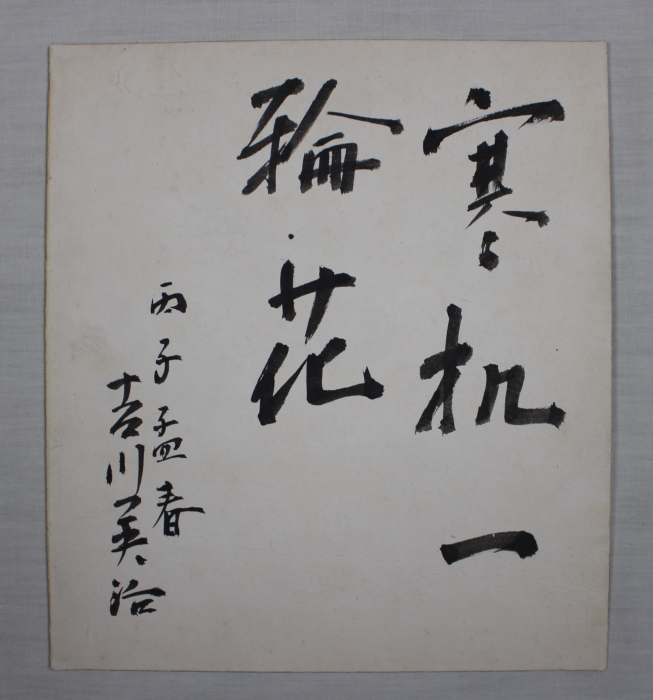 寒机一
輪花
丙子孟春
吉川英治